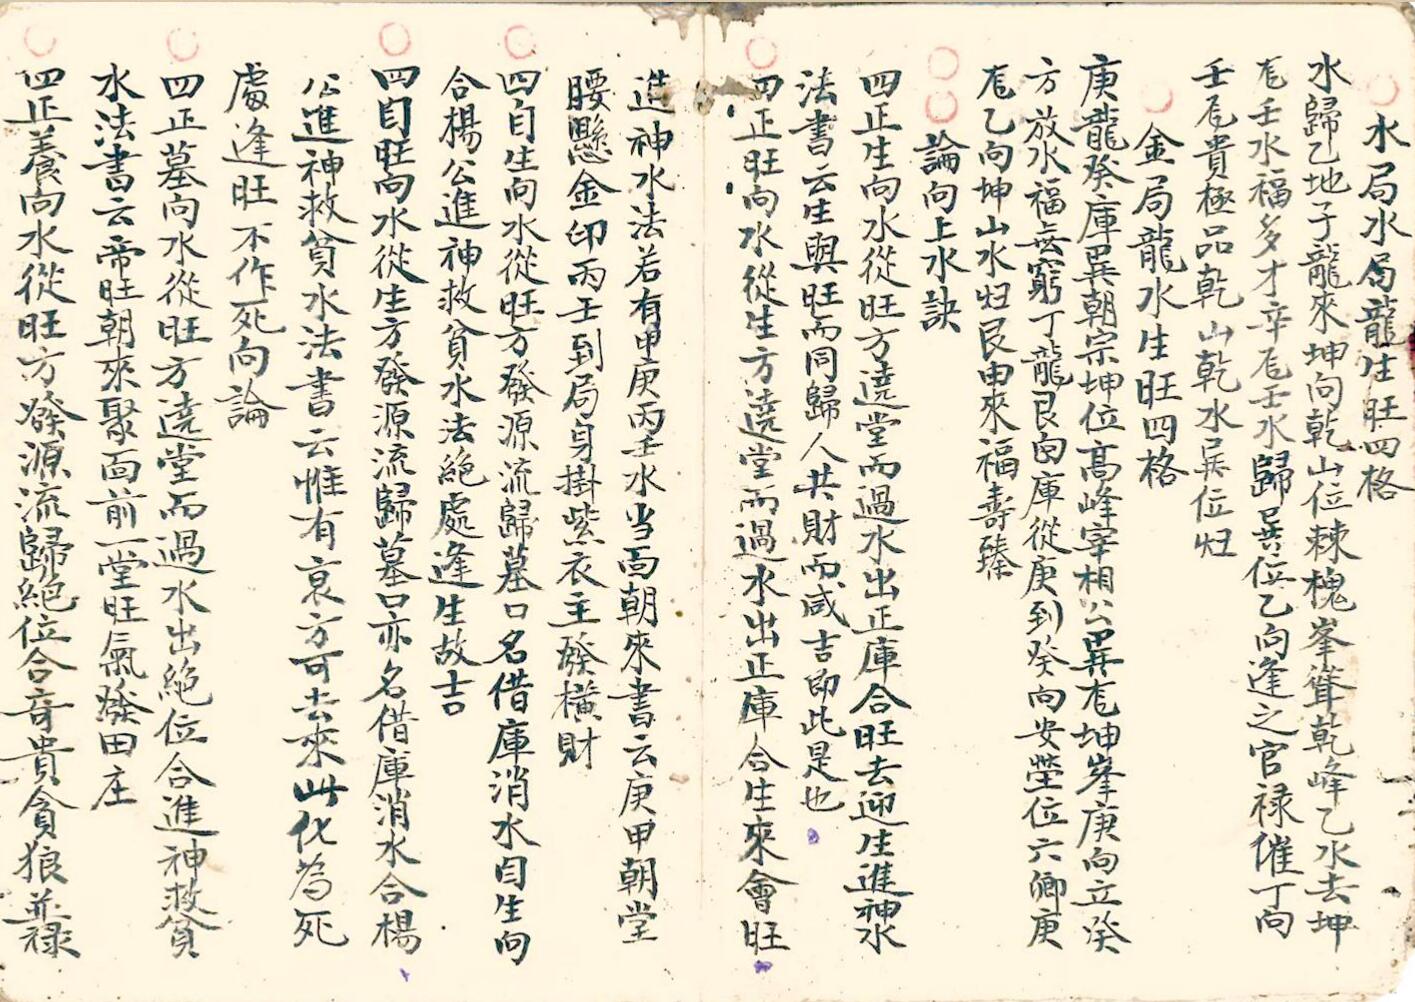 水局水局龍生旺四格
水歸乙地子龍來坤向乾山位棘槐峯聳乾峰乙水去坤
尨壬水福多才辛尨壬水歸巽位乙向逢之官禄催丁向
壬尨貴極品乾山乾水巽位归
金局龍水生旺四格
庚龍癸庫巽朝宗坤位高峰宰相公巽尨坤峯庚向立癸
方放水福無窮丁龍艮向庫從庚到癸向安塋位六卿庚
尨乙向坤山水归艮由來福壽臻
論向上水訣
四正生向水從旺方遶堂而過水出正庫合旺去迎生進神水
法書云生與旺而同歸人共財而咸吉即此是也
四正旺向水從生方遶堂而過水出正庫合生來會旺
進神水法若有甲庚丙壬水当面朝來書云庚甲朝堂
腰懸金印丙壬到局身掛紫衣主發橫財
四自生向水從旺方發源流歸墓口名借庫消水自生向
合楊公進神救貧水法絕處逢生故吉
四自旺向水從生方發源流歸墓口亦名借庫消水合楊
公進神救貧水法書云惟有衰方可去來此化為死
處逢旺不作死向論
四正墓向水從旺方遶堂而過水出絕位合進神救貧
水法書云帝旺朝來聚面前一堂旺氣發田庄
四正養向水從旺方發源流歸絕位合奇貴貪狼並祿